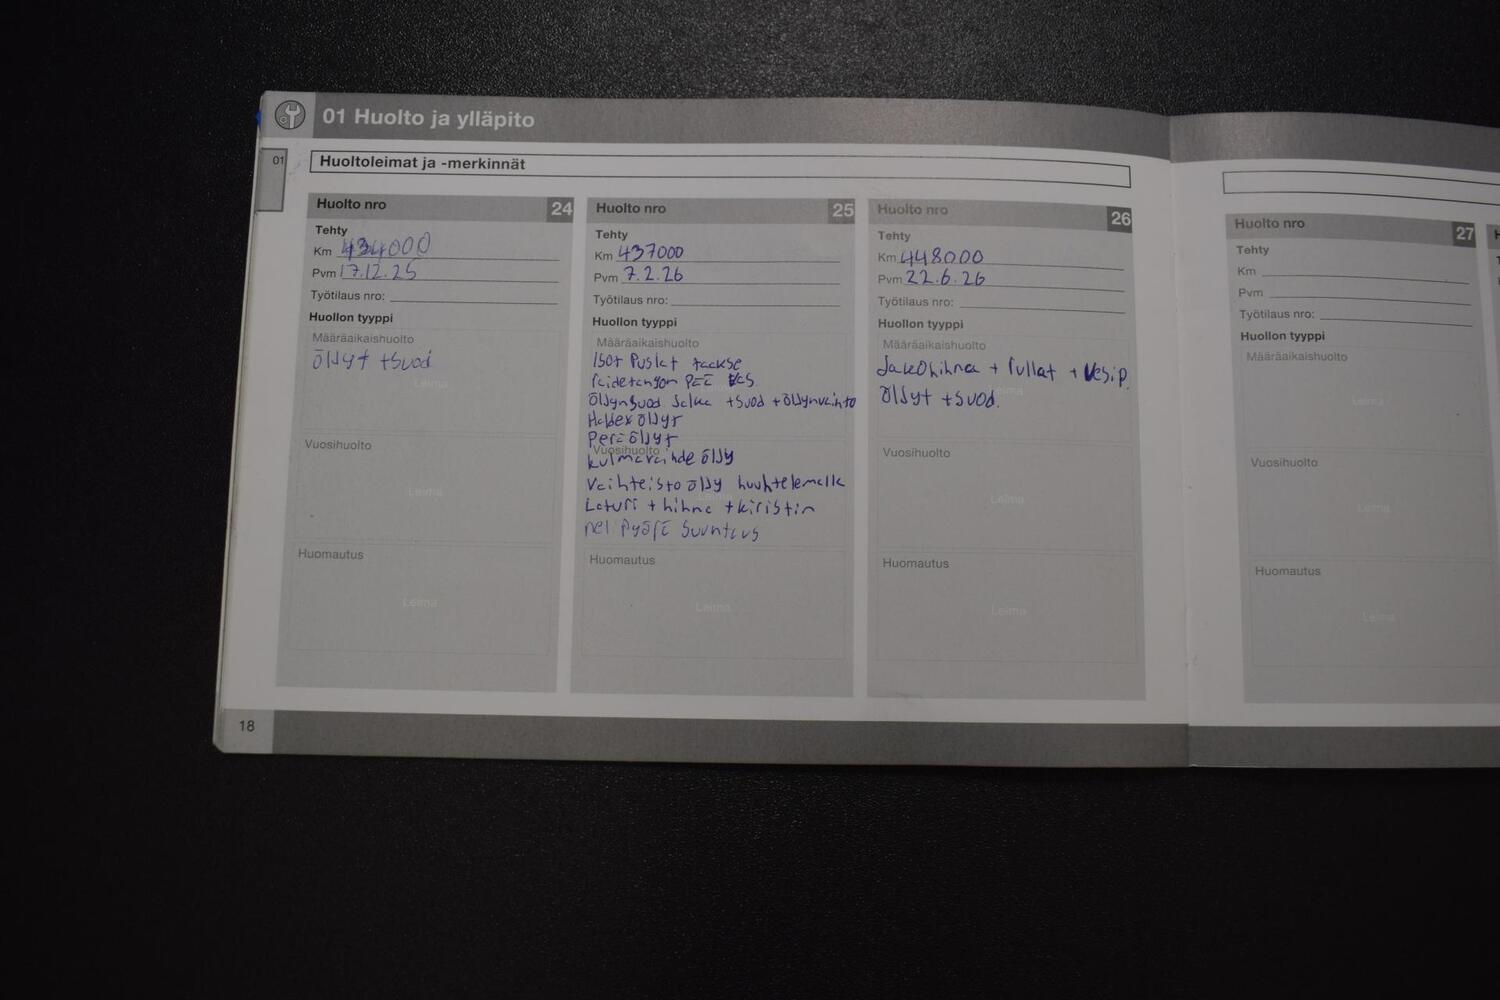 01 Huolto ja ylläpito
01
Huoltoleimat ja -merkinnät
Huolto nro 24
Tehty
Km 434000
Pvm 17.12.25
Työtilaus nro:
Huollon tyyppi
Määräaikaishuolto
öljyt + suod
Leima
Vuosihuolto
Leima
Huomautus
Leima
Huolto nro 25
Tehty
Km 437000
Pvm 7.2.26
Työtilaus nro:
Huollon tyyppi
Määräaikaishuolto
Isot Puslat taakse
raidetangon Pää vas
öljynsuod. Jalka + suod + öljynvaihto
Haldex öljyt
Perä öljyt
Vuosihuolto
kulmavaihde öljy
Vaihteisto öljy huuhtelemalla
Laturi + hihna + kiristin
nel pyörä suuntaus
Huomautus
Leima
Huolto nro 26
Tehty
Km 448000
Pvm 22.6.26
Työtilaus nro:
Huollon tyyppi
Määräaikaishuolto
Jakohihna + rullat + Vesip.
öljyt + suod.
Leima
Vuosihuolto
Leima
Huomautus
Leima
Huolto nro 27
Tehty
Km
Pvm
Työtilaus nro:
Huollon tyyppi
Määräaikaishuolto
Leima
Vuosihuolto
Leima
Huomautus
Leima
18